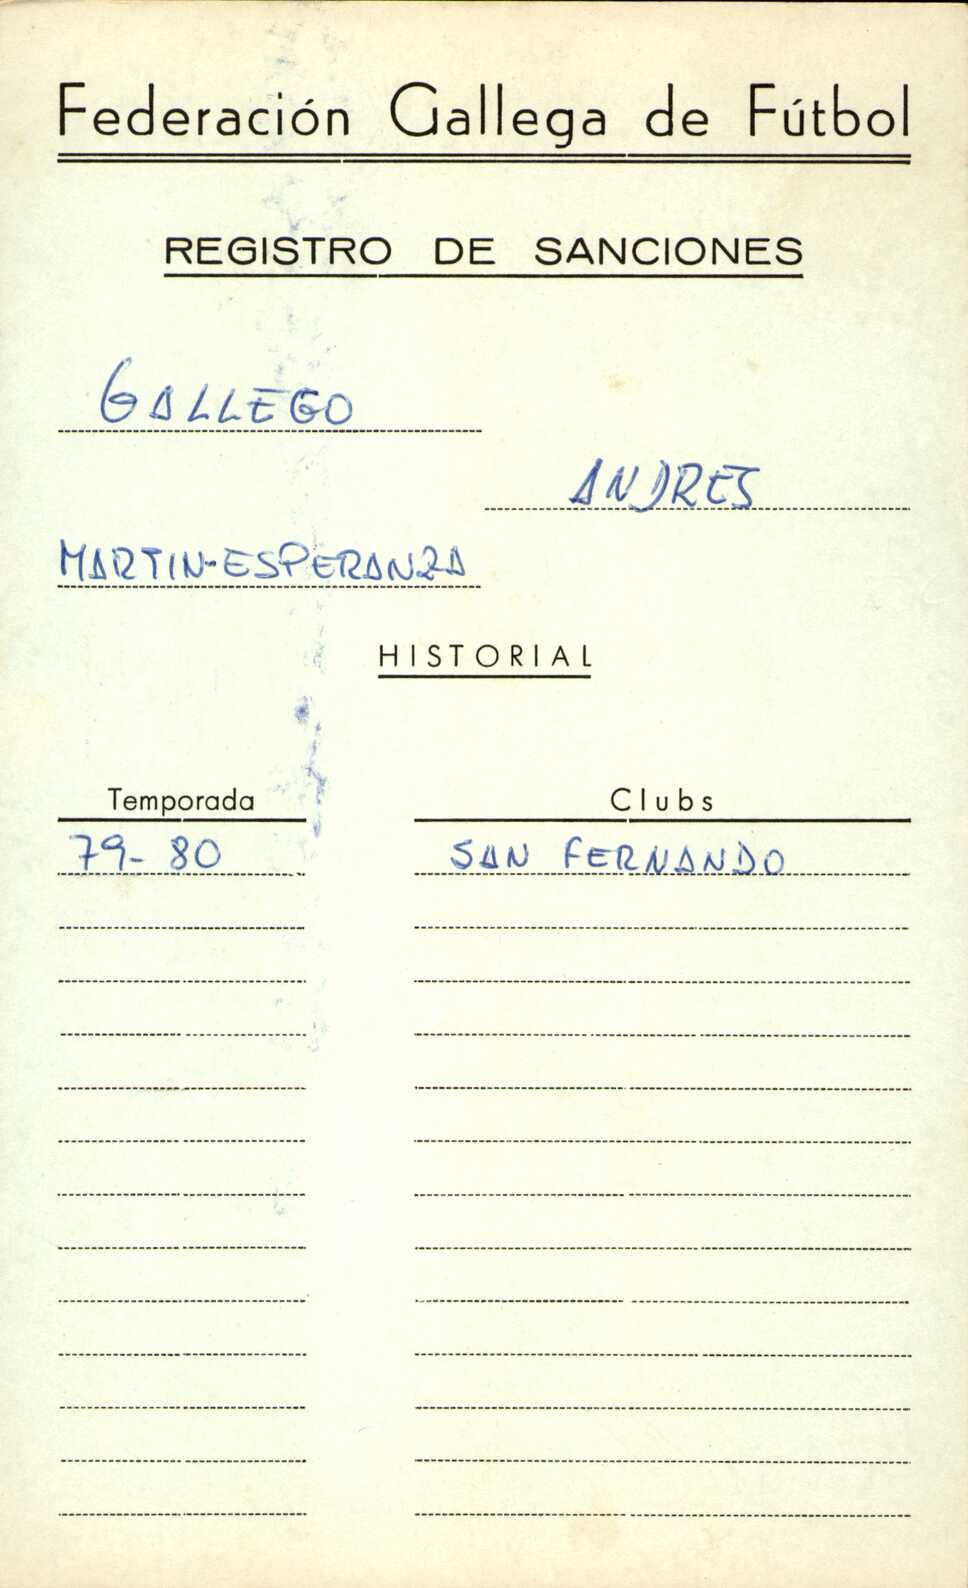 Federación Gallega de Fútbol
REGISTRO DE SANCIONES
GALLEGO
ANDRES
MARTIN-ESPERANZA
HISTORIAL
Temporada Clubs
79-80 SAN FERNANDO